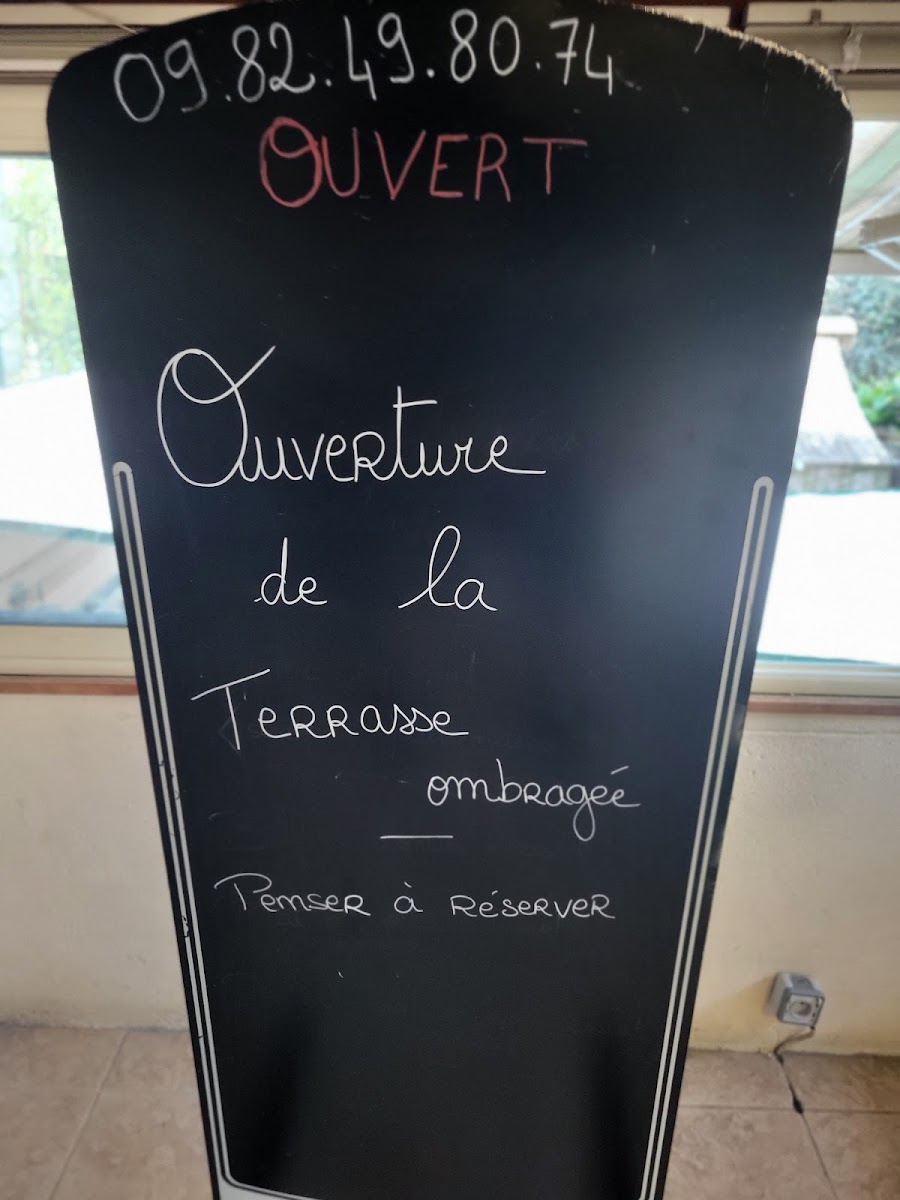 09.82.49.80.74
OUVERT
Ouverture
de la
Terrasse
ombragée
Penser à réserver